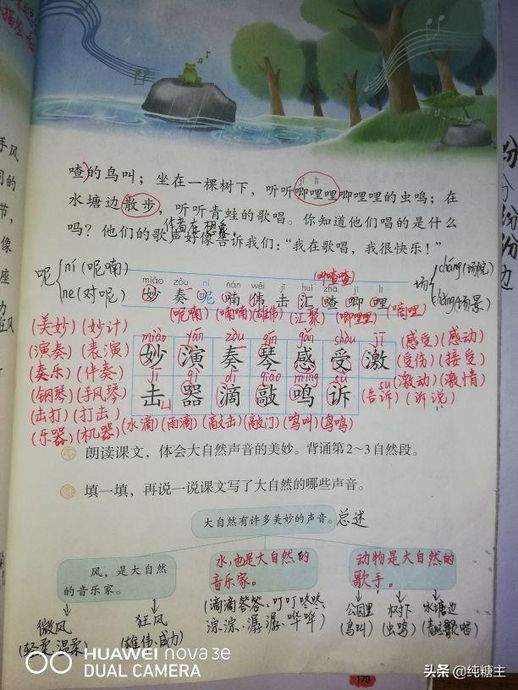 喳的鸟叫；坐在一棵树下，听听唧哩哩唧哩哩的虫鸣；在
水塘边散步，听听青蛙的歌唱。你知道他们唱的是什么
作者在想象
吗？他们的歌声好像告诉我们：“我在歌唱，我很快乐！”
呢 ní(呢喃) ne(对呢)
miào zòu ní nán wěi jī huì zhā jī lī
妙 奏 呢 喃 伟 击 汇 喳 唧 哩
(呢喃) (喃喃) (雄伟) (汇聚) (唧哩哩)
场 cháng(场院) chǎng(场景)
(美妙)(妙计)
(演奏)(表演)
(奏乐)(伴奏)
(钢琴)(手风琴)
(击打)(打击)
(乐器)(机器)
miào yǎn zòu qín gǎn shòu jī
妙 演 奏 琴 感 受 激
jī qì dī qiāo míng sù
击 器 滴 敲 鸣 诉
(感受)(感动)
(受伤)(接受)
(激动)(激情)
(告诉)(诉说)
(水滴)(雨滴)(敲击)(敲门)(鸣叫)(鸟鸣)
朗读课文，体会大自然声音的美妙。背诵第2~3自然段。
填一填，再说一说课文写了大自然的哪些声音。
大自然有许多美妙的声音。 总述
风，是大自然
的音乐家。
水，也是大自然的
音乐家。
动物是大自然的
歌手。
微风
(轻柔、温柔)
狂风
(雄伟、威力)
(滴滴答答、叮叮咚咚
淙淙、潺潺、哗哗)
公园里
(鸟叫)
树下
(虫鸣)
水塘边
HUAWEI nova 3e
DUAL CAMERA
179
头条 @纯糖主